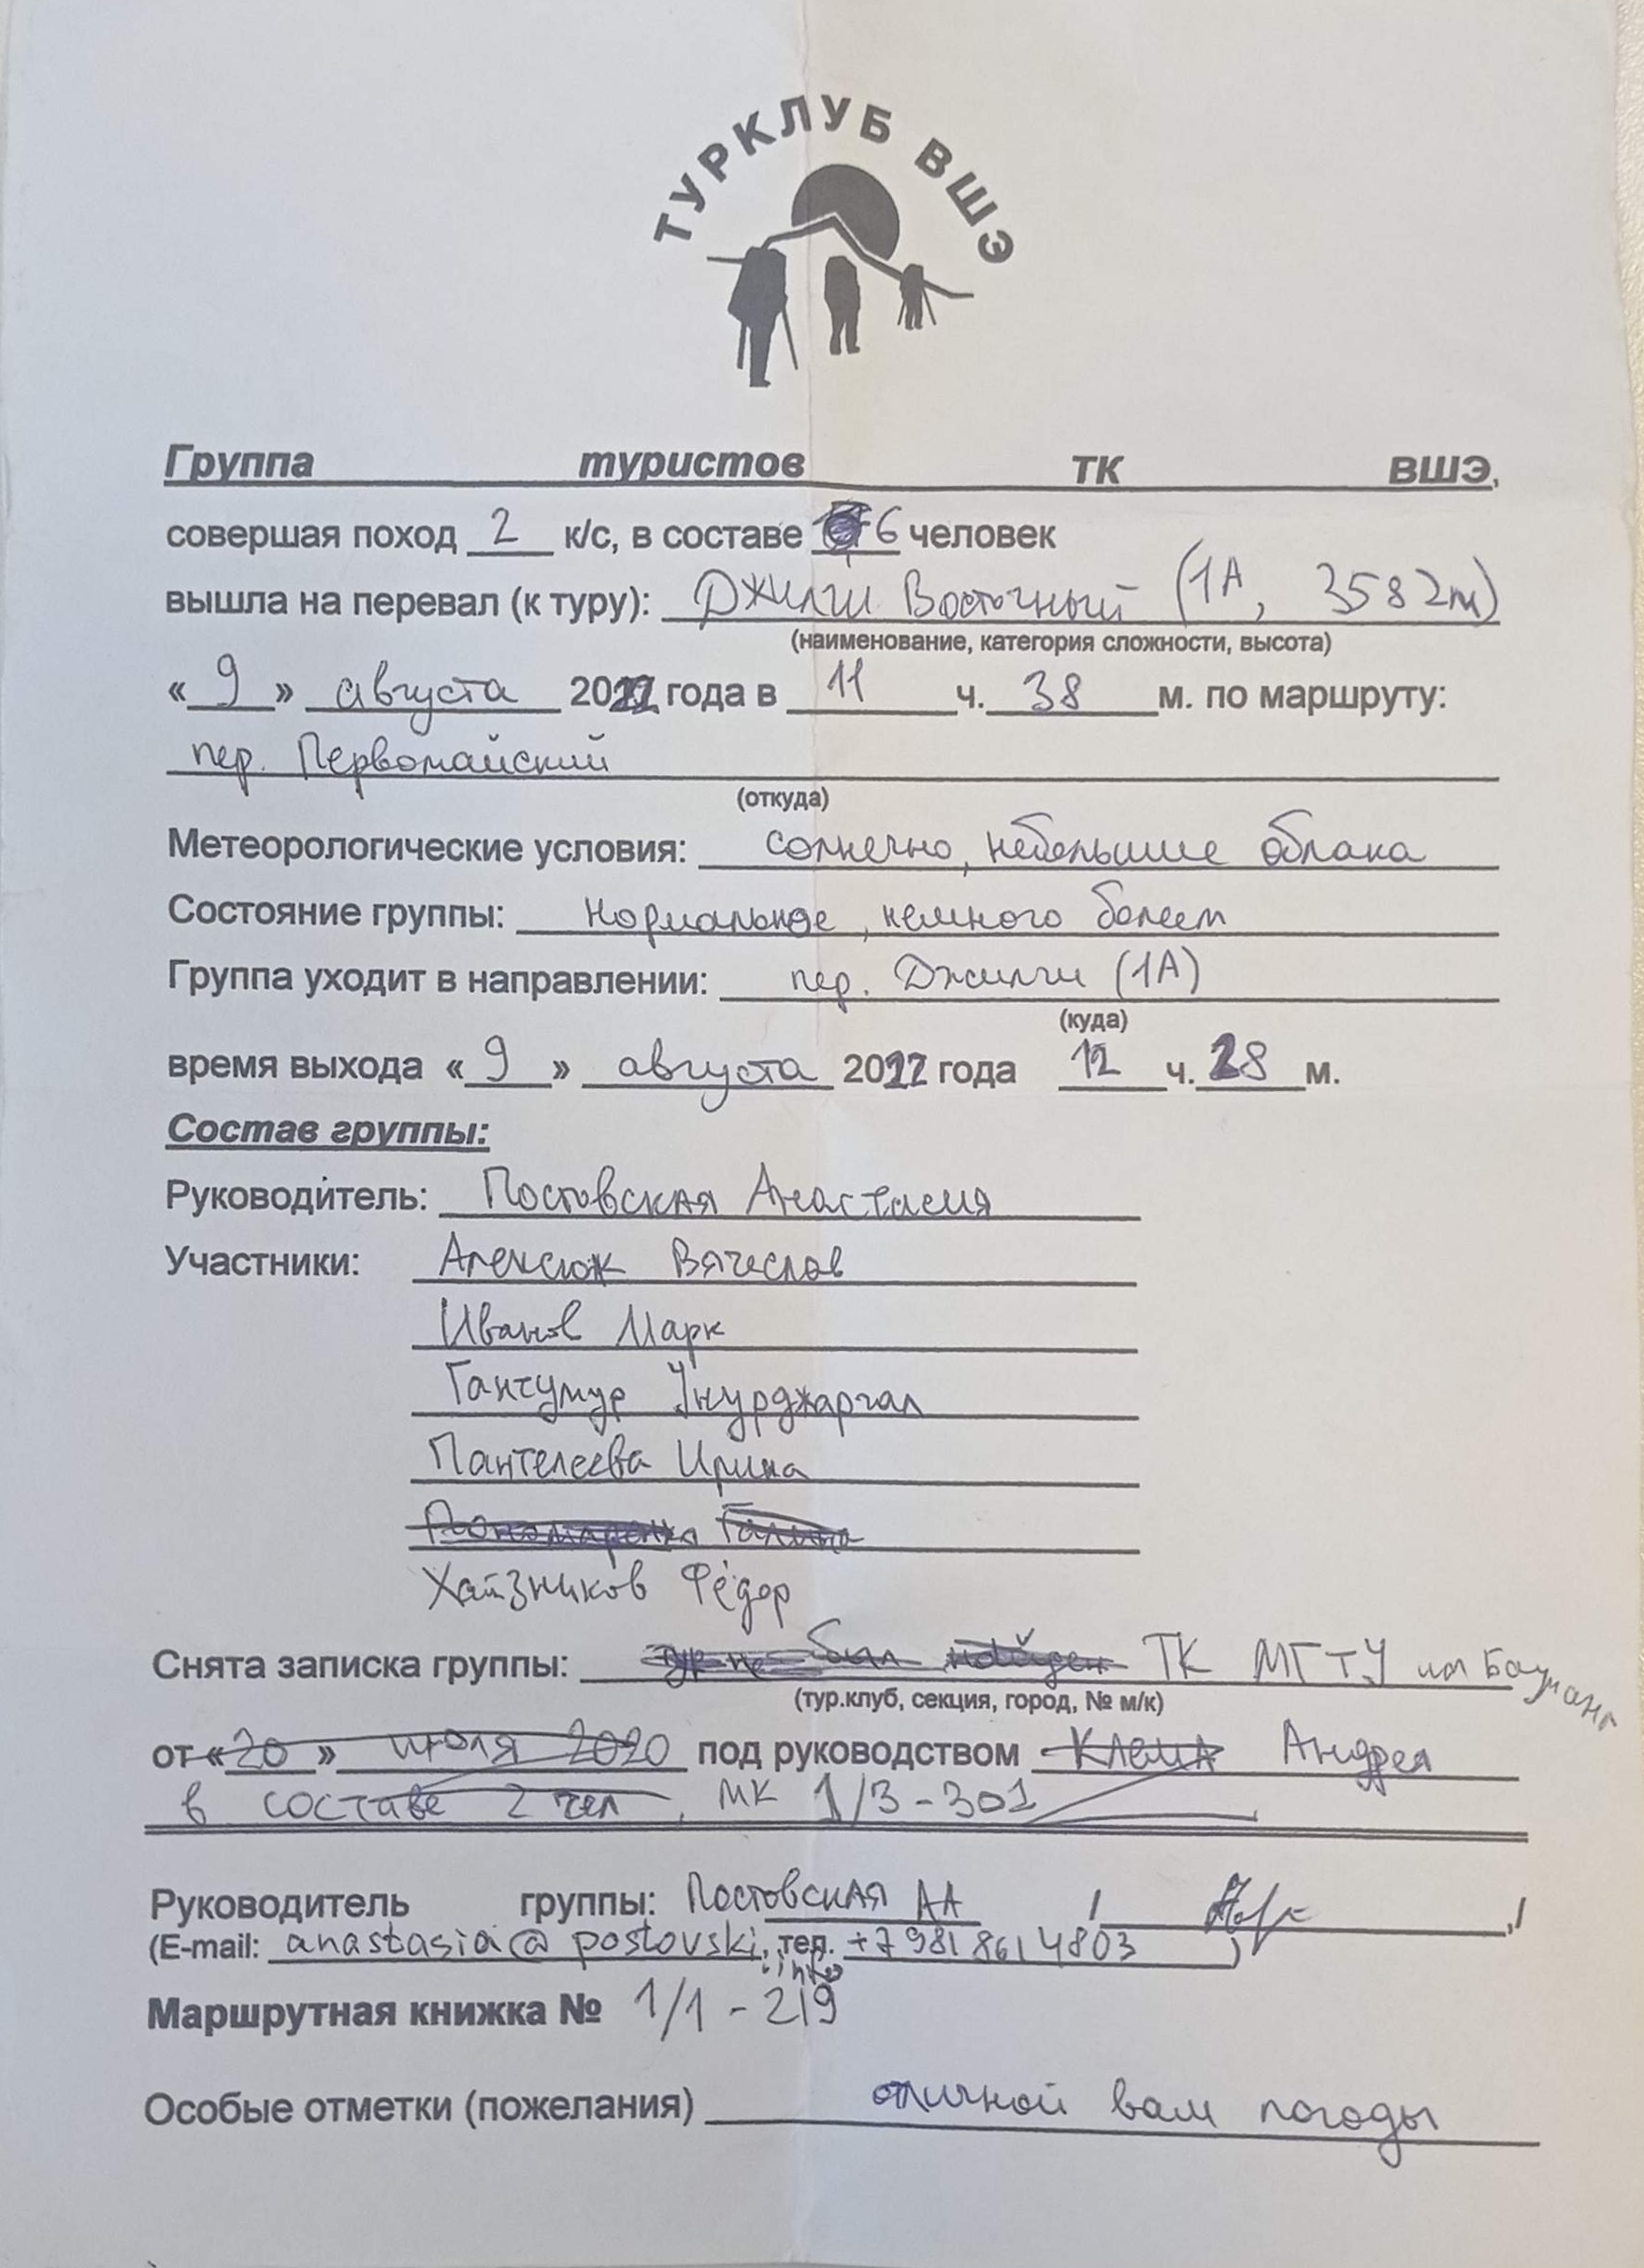 ТУРКЛУБ ВШЭ
Группа туристов ТК ВШЭ,
совершая поход 2 к/с, в составе 6 человек
вышла на перевал (к туру): Джилги Восточный (1А, 3582м)
(наименование, категория сложности, высота)
«9» августа 2022 года в 11 ч. 38 м. по маршруту:
пер. Первомайский
(откуда)
Метеорологические условия: солнечно, небольшие облака
Состояние группы: нормальное, немного болеем
Группа уходит в направлении: пер. Джилги (1А)
(куда)
время выхода «9» августа 2022 года 12 ч. 28 м.
Состав группы:
Руководитель: Постовская Анастасия
Участники: Алексюк Вячеслав
Иванов Марк
Гантумур Унурджаргал
Пантелеева Ирина
Хайзников Фёдор
Снята записка группы: ТК МГТУ им Баумана
(тур.клуб, секция, город, № м/к)
от «20» июля 2020 под руководством Андрея
в составе 2 чел, МК 1/3-301
Руководитель группы: Постовская АА / /
(E-mail: anastasia@postovski.info, тел. +79818614803)
Маршрутная книжка № 1/1-219
Особые отметки (пожелания) отличной вам погоды